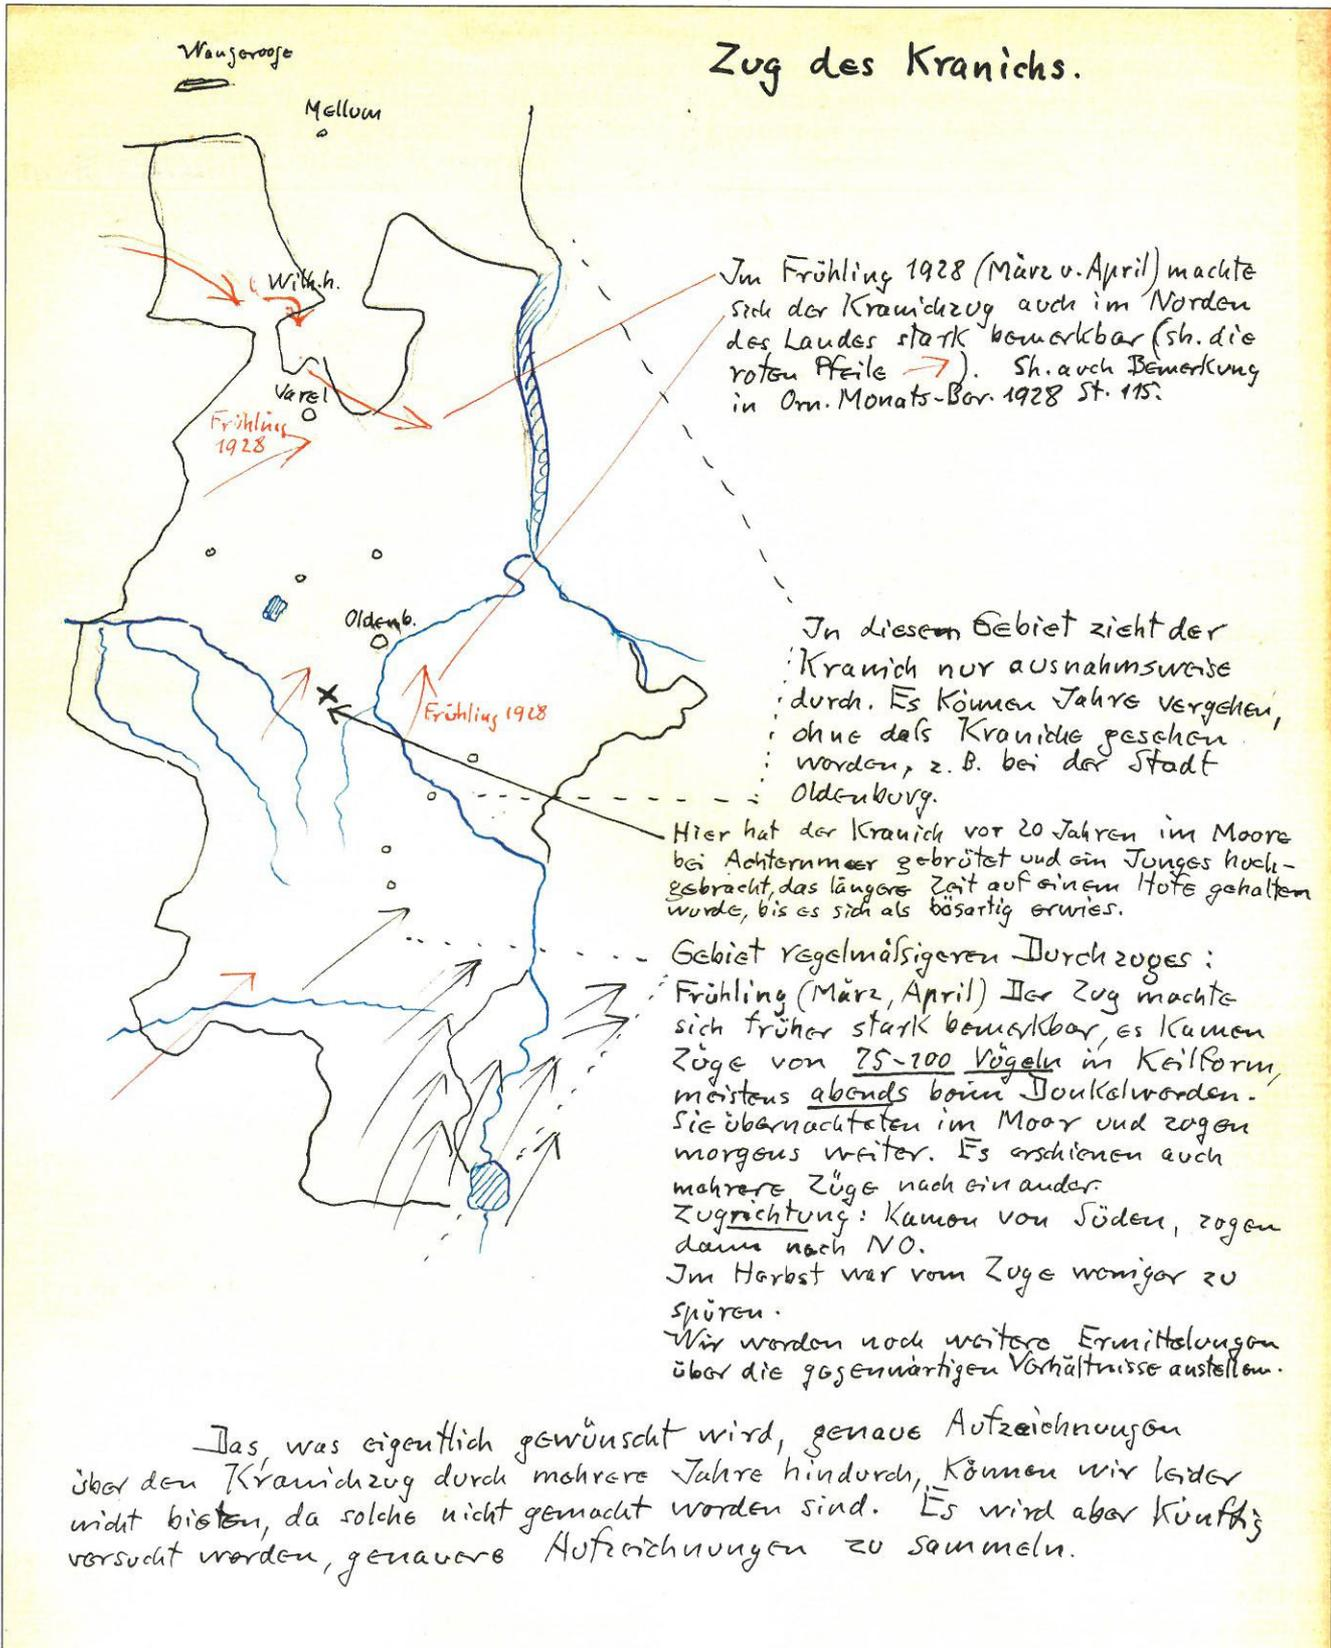 Zug des Kranichs.
Wangerooge
Mellum
Wilh.h.
Varel
Frühling
1928
Oldenb.
Frühling 1928
Im Frühling 1928 (März u. April) machte
sich der Kranichzug auch im Norden
des Landes stark bemerkbar (sh. die
roten Pfeile →). Sh. auch Bemerkung
in Orn. Monats-Ber. 1928 St. 115.
In diesem Gebiet zieht der
Kranich nur ausnahmsweise
durch. Es können Jahre vergehen,
ohne daß Kraniche gesehen
werden, z. B. bei der Stadt
Oldenburg.
Hier hat der Kranich vor 20 Jahren im Moore
bei Achternmeer gebrütet und ein Junges hoch-
gebracht, das längere Zeit auf einem Hofe gehalten
wurde, bis es sich als bösartig erwies.
Gebiet regelmäßigeren Durchzuges:
Frühling (März, April) Der Zug machte
sich früher stark bemerkbar, es kamen
Züge von 75-100 Vögeln in Keilform,
meistens abends beim Dunkelwerden.
Sie übernachteten im Moor und zogen
morgens weiter. Es erschienen auch
mehrere Züge nach einander.
Zugrichtung: Kamen von Süden, zogen
dann nach NO.
Im Herbst war vom Zuge weniger zu
spüren.
Wir werden noch weitere Ermittelungen
über die gegenwärtigen Verhältnisse anstellen.
Das, was eigentlich gewünscht wird, genaue Aufzeichnungen
über den Kranichzug durch mehrere Jahre hindurch, können wir leider
nicht bieten, da solche nicht gemacht worden sind. Es wird aber künftig
versucht werden, genauere Aufzeichnungen zu sammeln.